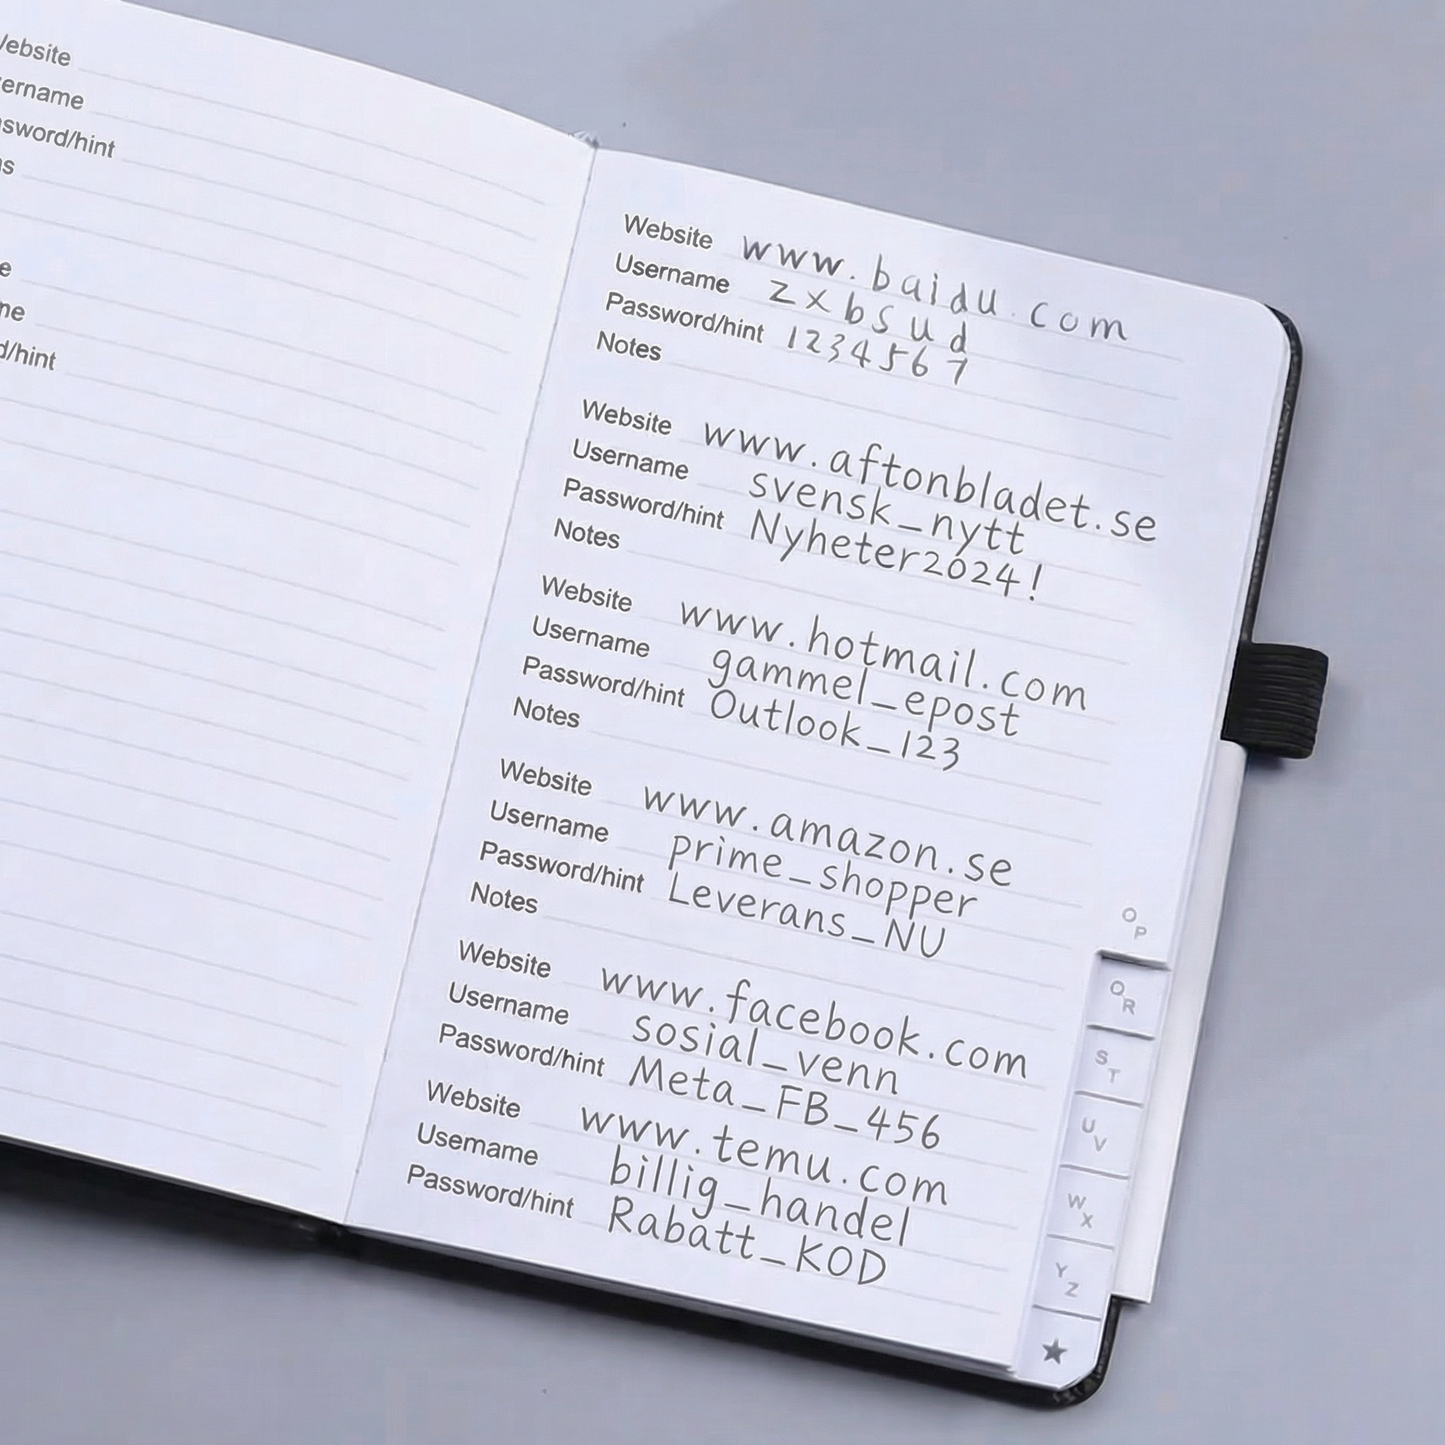 Website
ername
sword/hint
s
e
ne
d/hint
Website www.baidu.com
Username zxbsud
Password/hint 1234567
Notes
Website www.aftonbladet.se
Username svensk_nytt
Password/hint Nyheter2024!
Notes
Website www.hotmail.com
Username gammel_epost
Password/hint Outlook_123
Notes
Website www.amazon.se
Username prime_shopper
Password/hint Leverans_NU
Notes
Website www.facebook.com
Username sosial_venn
Password/hint Meta_FB_456
Website www.temu.com
Username billig_handel
Password/hint Rabatt_KOD
O P
O R
S T
U V
W X
Y Z
★